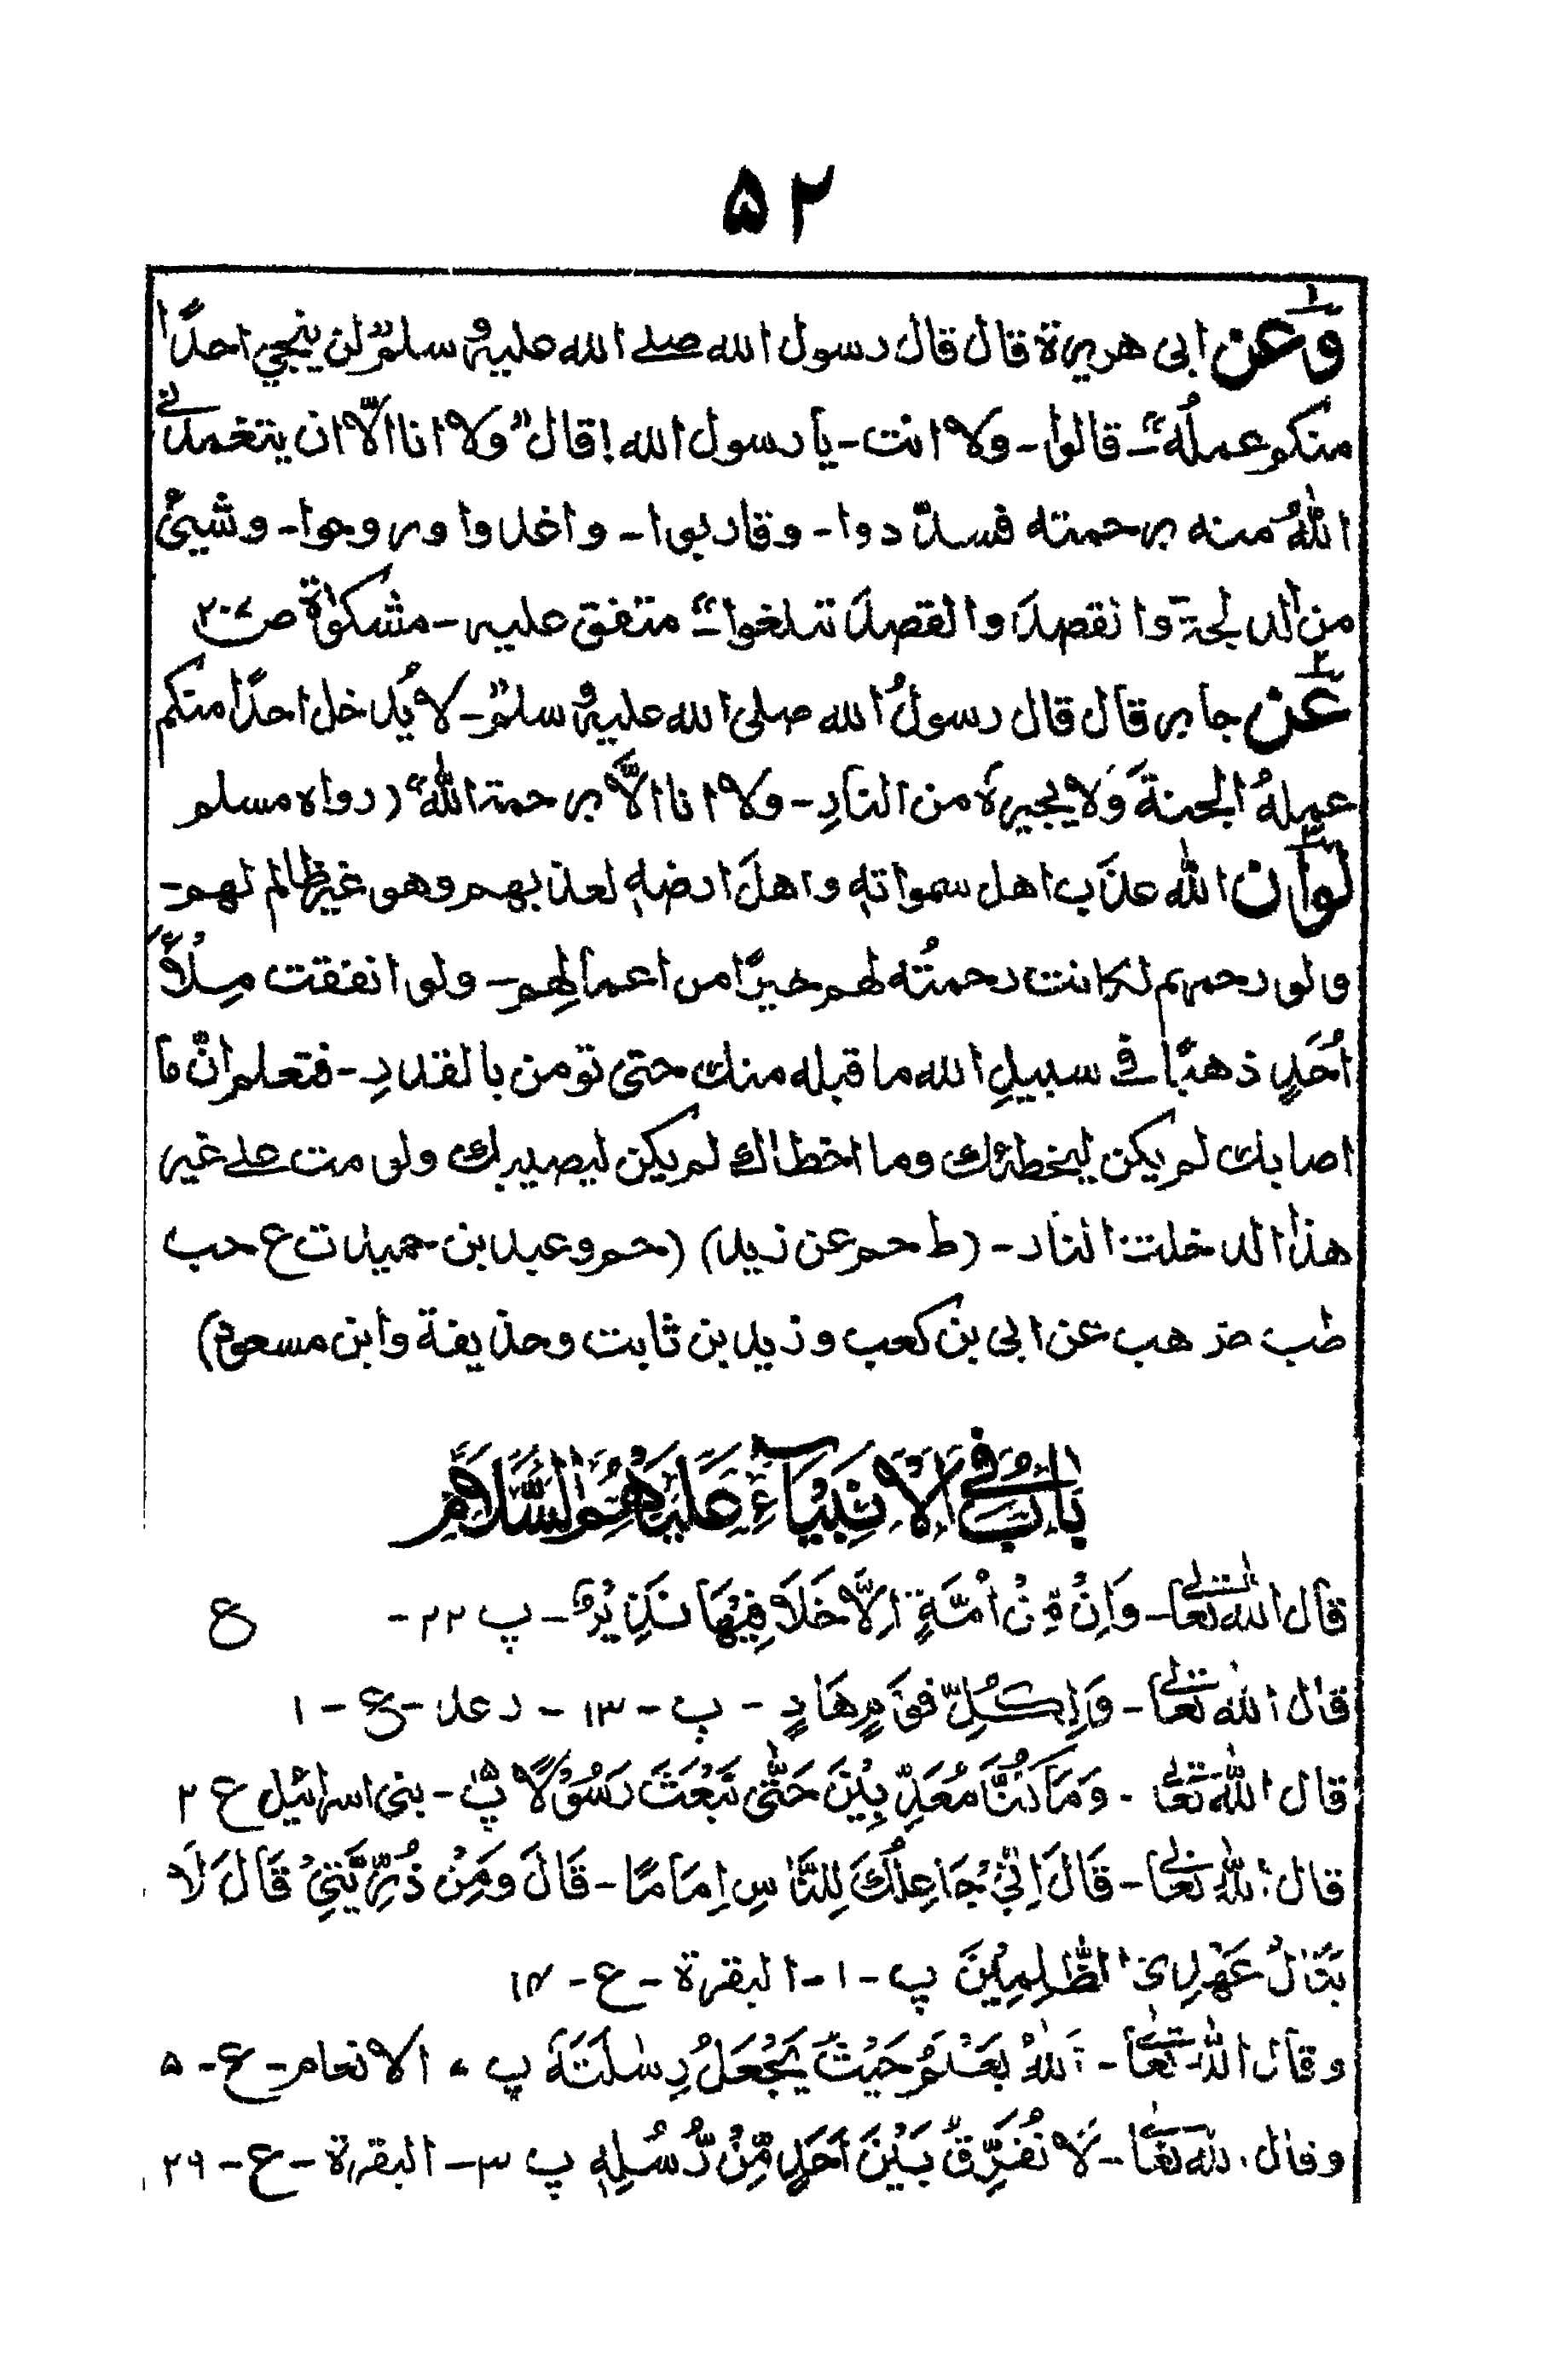 ۵۲
وَعن ابی هریرة قال قال رسول الله صلے الله علیہ وسلم "لن ینجي احدًا
منکم عملُه" ـ قالوا ـ ولا انت ـ یا رسول الله! قال "ولا انا الّا ان یتغمدنی
اللهُ منه برحمته فسدّدوا ـ وقاربوا ـ واغدوا وروحوا ـ وشیئٌ
من الدلجة وا نقصدَ والقصدَ تبلغوا" متفق علیہ ـ مشکوٰة ص ۲۰۷
عن جابر قال قال رسولُ الله صلی الله علیہ وسلم" ـ لا یُدخل احدًا منکم
عملهُ الجنةَ وَلا یجیرهٗ من النارِ ـ ولا انا الّا برحمة الله" (رواه مسلم
لَو اَن الله عذّب اهل سمواتهٖ واهلَ ارضهٖ لعذبهم وهو غیر ظالم لهم ـ
ولو رحمهم لکانت رحمتُه لهم خیرًا من اعمالِهم ـ ولو انفقت مِلأَ
اُحَدٍ ذهبًا فے سبیلِ الله ما قبله منك حتی تؤمن بالقدرِ ـ فتعلم انّ ما
اصابك لم یکن لیخطئك وما اخطاك لم یکن لیصیبك ولو مت علے غیر
هذا لدخلت النار ـ (ط حم عن زید) (حم وعبد بن حمید ت ع حب
طب ض هب عن ابی بن کعب وزید بن ثابت وحذیفة وابن مسعود)
بَابٌ فِی الْاَنْبِیَآءِ عَلَیْهِمُ السَّلَامُ
قال الله تعالیٰ ـ وَاِنْ مِّنْ اُمَّةٍ اِلَّا خَلَا فِیْهَا نَذِیْرٌ ـ پ ۲۲ ـ ع
قال الله تعالیٰ ـ وَلِکُلِّ قَوْمٍ هَادٍ ـ پ ـ ۱۳ ـ رعد ـ ع ـ ۱
قال الله تعالیٰ ـ وَمَا کُنَّا مُعَذِّبِیْنَ حَتّٰی نَبْعَثَ رَسُوْلًا پ۱۵ ـ بنی اسرائیل ع ۲
قال الله تعالیٰ ـ قَالَ اِنِّیْ جَاعِلُكَ لِلنَّاسِ اِمَامًا ـ قَالَ وَمِنْ ذُرِّیَّتِیْ قَالَ لَا
یَنَالُ عَهْدِی الظّٰلِمِیْنَ پ ـ ۱ ـ البقرة ـ ع ـ ۱۴
وقال الله تعالیٰ ـ اَللهُ یَعْلَمُ حَیْثُ یَجْعَلُ رِسٰلَتَهٗ پ ۸ الانعام ـ ع ـ ۵
وقال الله تعالیٰ ـ لَا نُفَرِّقُ بَیْنَ اَحَدٍ مِّنْ رُّسُلِهٖ پ ۳ ـ البقرة ـ ع ـ ۲۹